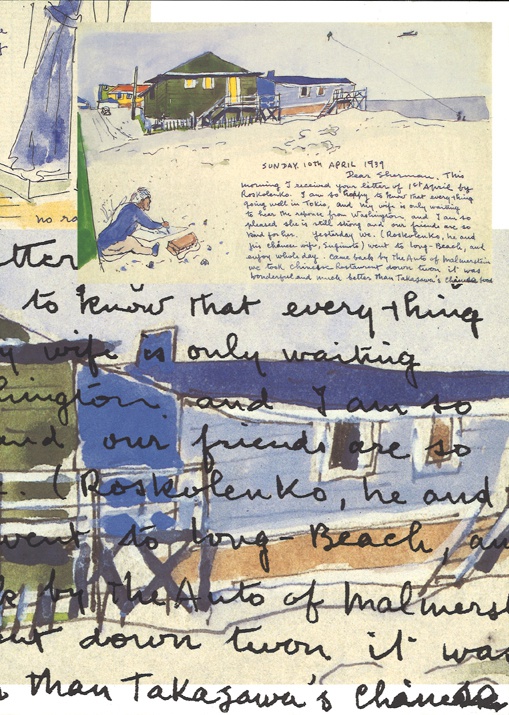 no ra
SUNDAY 10TH APRIL 1939
Dear Sherman. This
morning I received your letter of 1st April by
Roskolenko. I am so happy to know that everything
going well in Tokio, and my wife is only waiting
to hear the reponse from Washington, and I am so
pleased she is still strong and our friends are so
kind for her. Yesterday we. (Roskolenko, he and
his chinese wife, Sugimoto) went to long-Beach, and
enjoy whole day. Came back by the Auto of Malmerstein
we took Chinese Restaurant down twon it was
wonderful and much better than Takagawa's
tter
to know that everything
y wife is only waiting
hington, and I am so
and our friends are so
. (Roskolenko, he and
went to long-Beach, an
k by the Auto of Malmerst
out down twon it was
n than Takagawa's